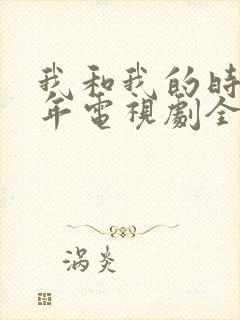 我和我的時
年電視劇全
涡炎